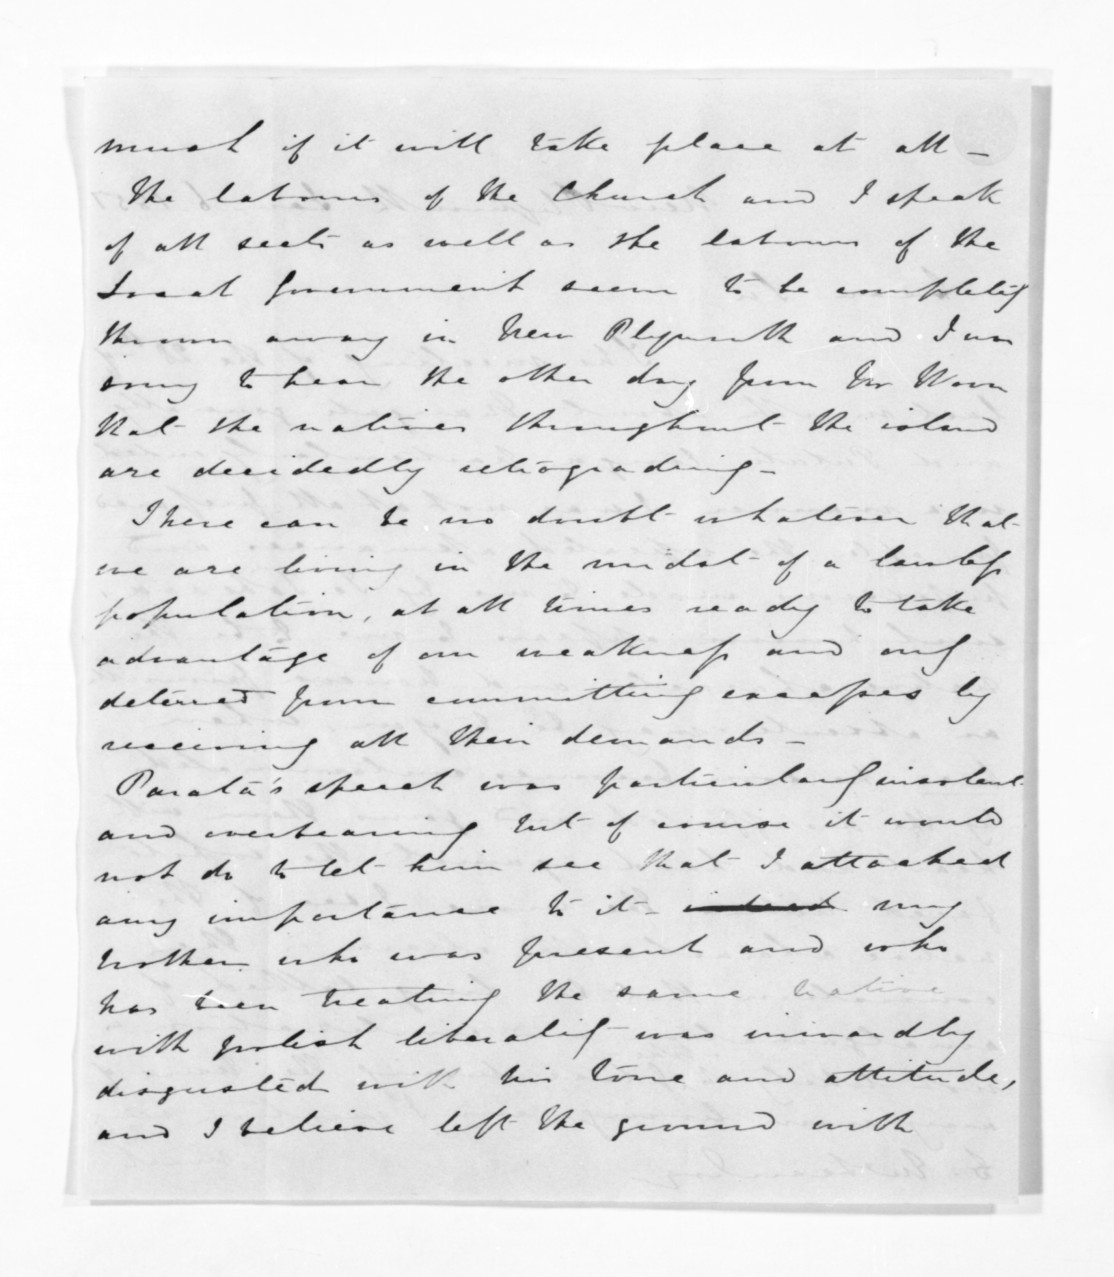 much if it will take place at all —
The labours of the Church and I speak
of all sects as well as the labours of the
Local Government seem to be completely
thrown away in New Plymouth and I was
sorry to hear the other day from Mr
that the natives throughout the island
are decidedly retrograding —
There can be no doubt whatever that
we are living in the midst of a lawless
population, at all times ready to take
advantage of our weakness and only
deterred from committing excesses by
receiving all their demands —
Parata's speech was particularly insolent
and overbearing but of course it would
not do to let him see that I attached
any importance to it — indeed my
brother who was present and who
has been treating the same native
with foolish liberality was inwardly
disgusted with his tone and attitude,
and I believe left the ground with